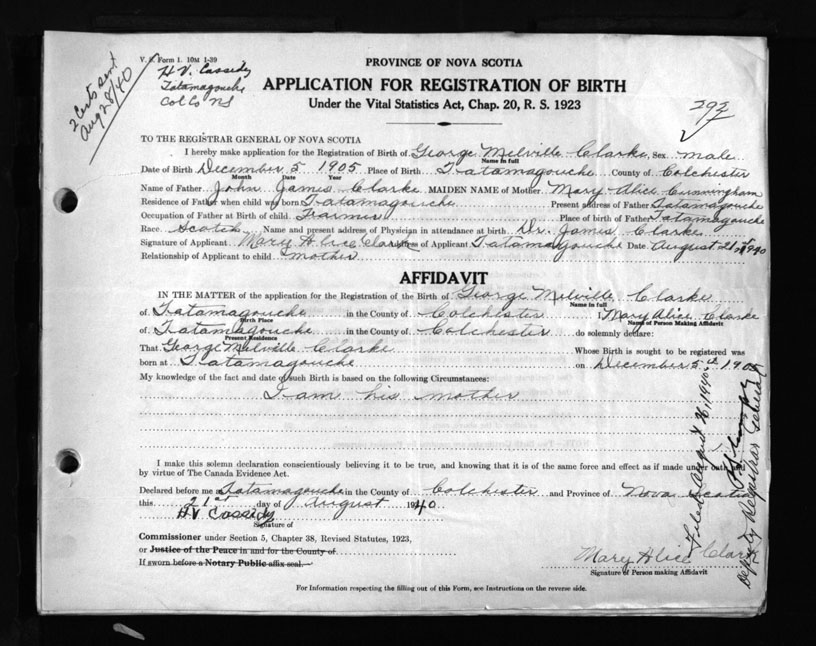 2 Certs sent
Aug 28/40
V. S. Form 1. 10M 1-39
H V. Cassidy
Tatamagouche
Col Co NS
PROVINCE OF NOVA SCOTIA
APPLICATION FOR REGISTRATION OF BIRTH
Under the Vital Statistics Act, Chap. 20, R. S. 1923
292
TO THE REGISTRAR GENERAL OF NOVA SCOTIA
I hereby make application for the Registration of Birth of George Melville Clarke, Sex male
Name in full
Date of Birth December 5 1905 Place of Birth Tatamagouche County of Colchester
Month Date Year
Name of Father John James Clarke MAIDEN NAME of Mother Mary Alice Cunningham
Residence of Father when child was born Tatamagouche Present address of Father Tatamagouche
Occupation of Father at Birth of child Farmer Place of birth of Father Tatamagouche
Race Scotch Name and present address of Physician in attendance at birth Dr. James Clarke
Signature of Applicant Mary Alice Clark Address of Applicant Tatamagouche Date August 21st 1940
Relationship of Applicant to child mother
AFFIDAVIT
IN THE MATTER of the application for the Registration of the Birth of George Melville Clarke
Name in full
of Tatamagouche in the County of Colchester I Mary Alice Clarke
Birth Place Name of Person Making Affidavit
of Tatamagouche in the County of Colchester do solemnly declare:
Present Residence
That George Melville Clarke Whose Birth is sought to be registered was
born at Tatamagouche on December 5th 1905
My knowledge of the fact and date of such Birth is based on the following Circumstances:
I am his mother
I make this solemn declaration conscientiously believing it to be true, and knowing that it is of the same force and effect as if made under oath and
by virtue of The Canada Evidence Act.
Declared before me at Tatamagouche in the County of Colchester and Province of Nova Scotia
this 21st day of August 1940
H V Cassidy
Signature of
Commissioner under Section 5, Chapter 38, Revised Statutes, 1923,
or Justice of the Peace in and for the County of
If sworn before a Notary Public affix seal.
Mary Alice Clark
Signature of Person making Affidavit
For Information respecting the filling out of this Form, see Instructions on the reverse side.
Filed August 26, 1940
Deputy Registrar General